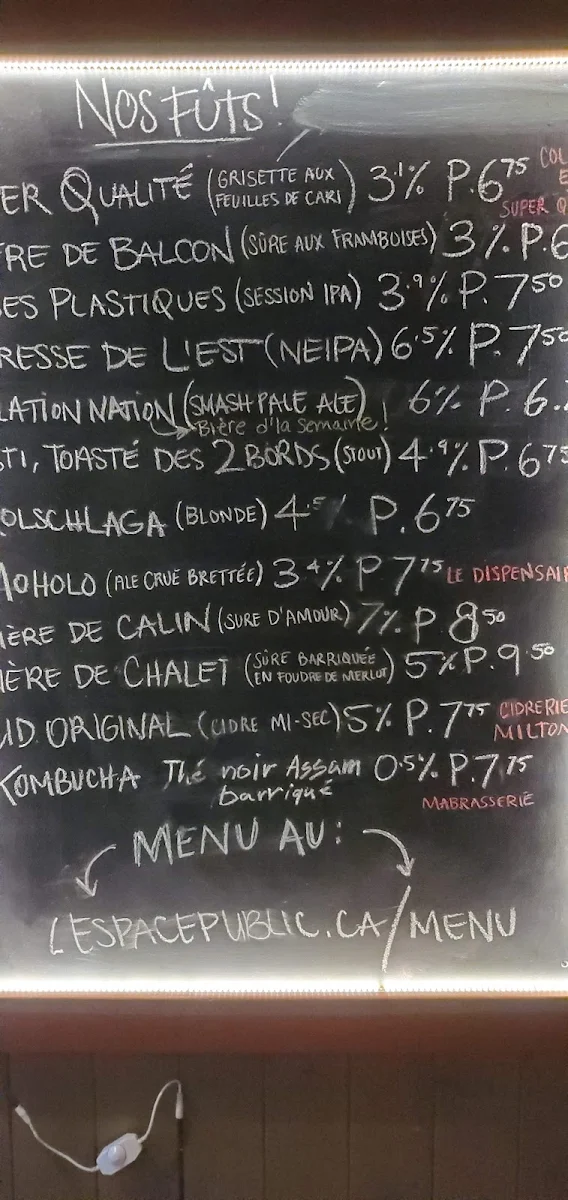 NOS FÛTS!
ER QUALITÉ (GRISETTE AUX FEUILLES DE CARI) 3.1% P.6.75 COL
SUPER Q
RE DE BALCON (SÛRE AUX FRAMBOISES) 3% P.6
ES PLASTIQUES (SESSION IPA) 3.9% P.7.50
RESSE DE L'EST (NEIPA) 6.5% P.7.50
LATION NATION (SMASH PALE ALE)! 6% P.6.
Bière d'la Semaine!
TI, TOASTÉ DES 2 BORDS (STOUT) 4.9% P.6.75
OLSCHLAGA (BLONDE) 4.5% P.6.75
MOHOLO (ALE CRUE BRETTÉE) 3.4% P 7.75 LE DISPENSAI
IÈRE DE CALIN (SURE D'AMOUR) 7% P 8.50
IÈRE DE CHALET (SÛRE BARRIQUÉE EN FOUDRE DE MERLOT) 5% P.9.50
UD ORIGINAL (CIDRE MI-SEC) 5% P.7.75 CIDRERIE MILTON
KOMBUCHA Thé noir Assam barriqué 0.5% P.7.75
MABRASSERIE
MENU AU:
LESPACEPUBLIC.CA/MENU